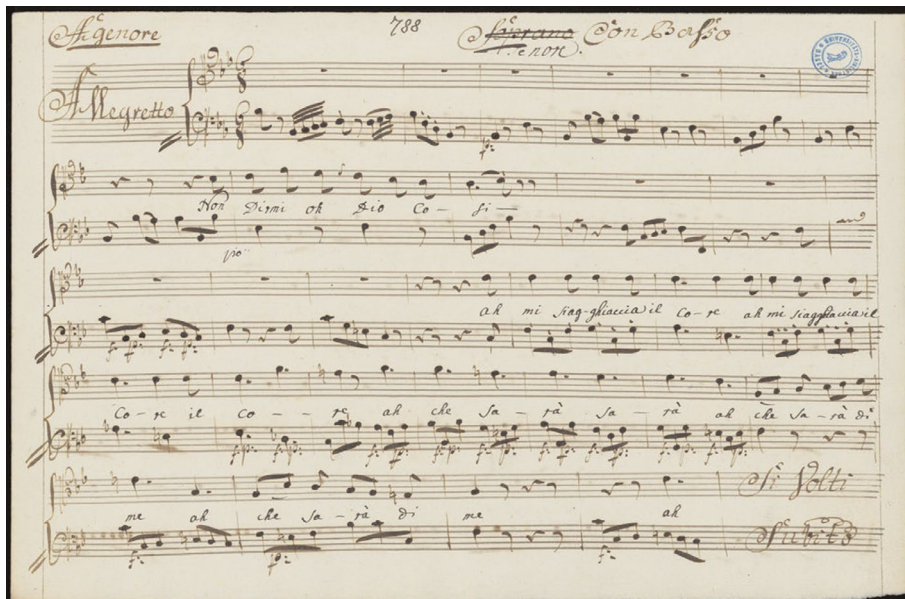 Agenore 788 Soprano Con Basso
Tenore.
Allegretto
p:
Non Dirmi oh Dio Co- si-
pio
ah mi siag-ghiaccia il Co-re ah mi siagghiaccia il
f: p: f: p: f: p: f: p: f: p: f: p:
Co-re il co--re ah che sa-rà sa-rà ah che sa-rà di
f:p: f:p: f:p: f:p: f:p: f:p: f:p: f:p:
me ah che sa-rà di me ah Si Volti
f: f:p: f: Subito